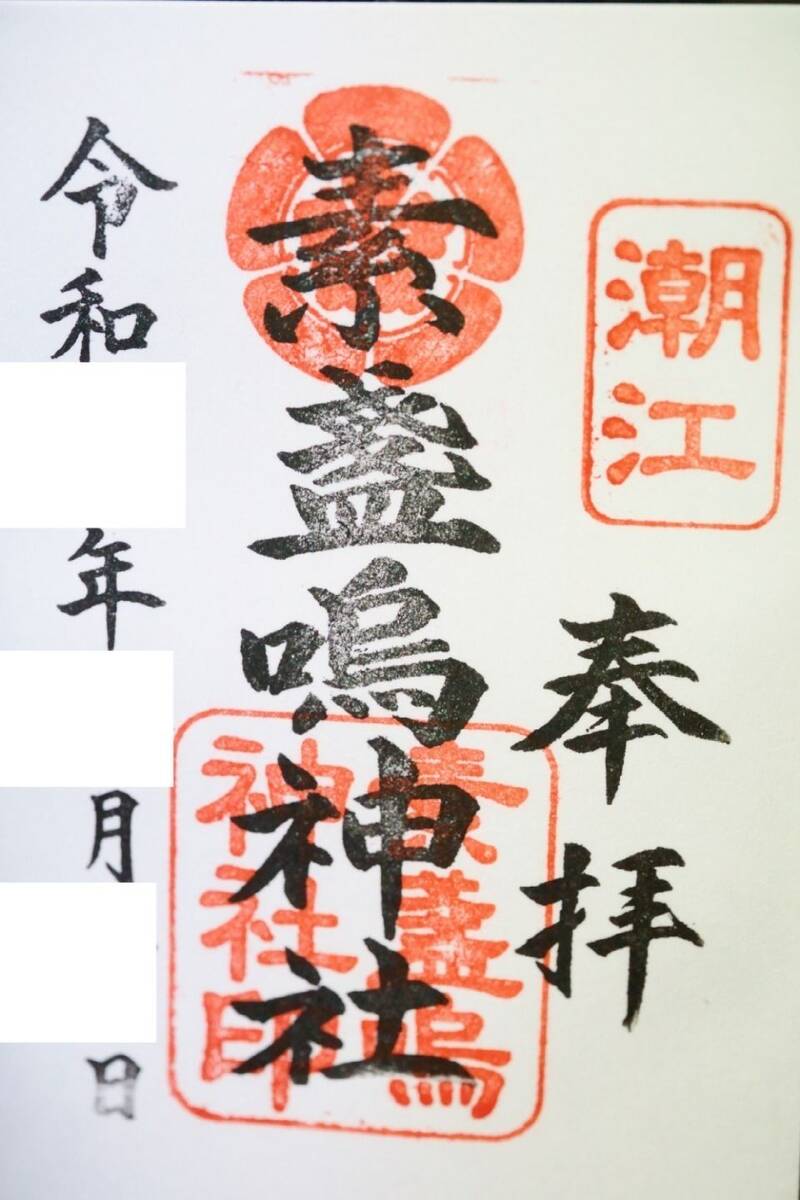 潮江
奉拝
素盞嗚神社
素盞嗚
神社印
令和 年 月 日